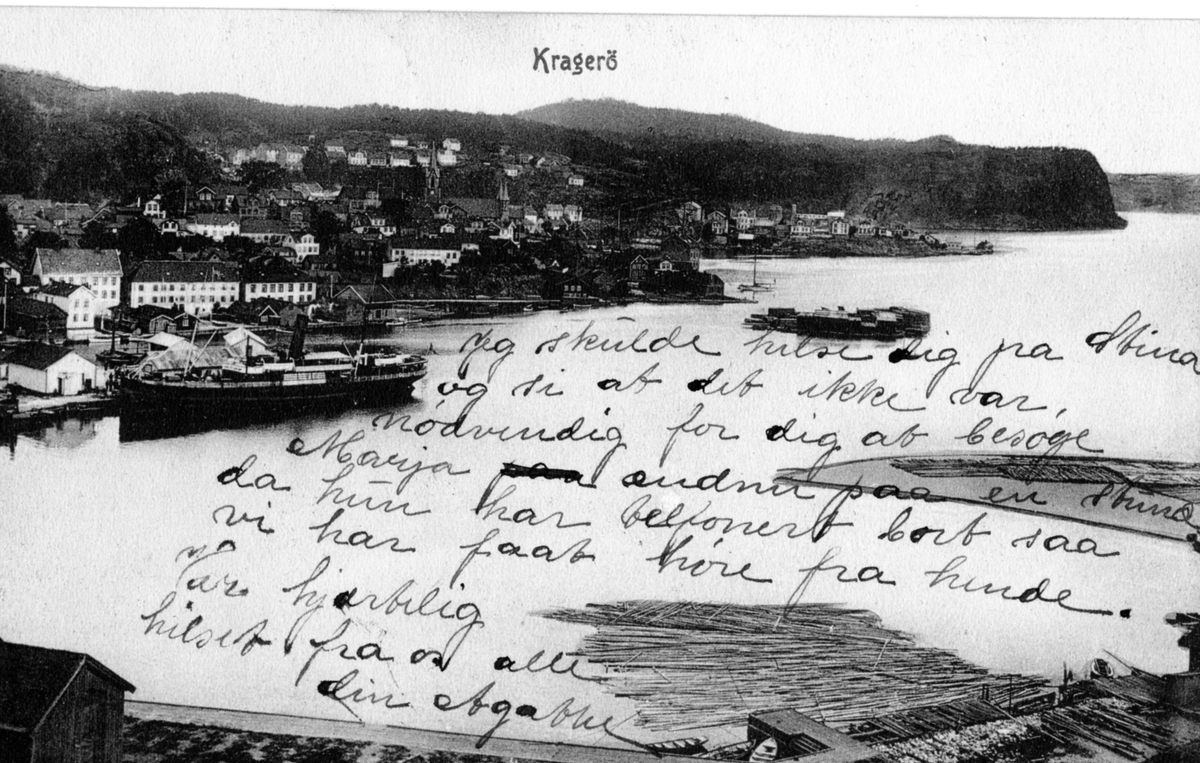 Kragerö
Jeg skulde hilse dig fra Stina
og si at det ikke var,
nødvendig for dig at besøge
Marja paa ændnu paa en stund
da hun har telfonert bort saa
vi har faat høre fra hende.
Vær hjærtelig
hilset fra os alle
din